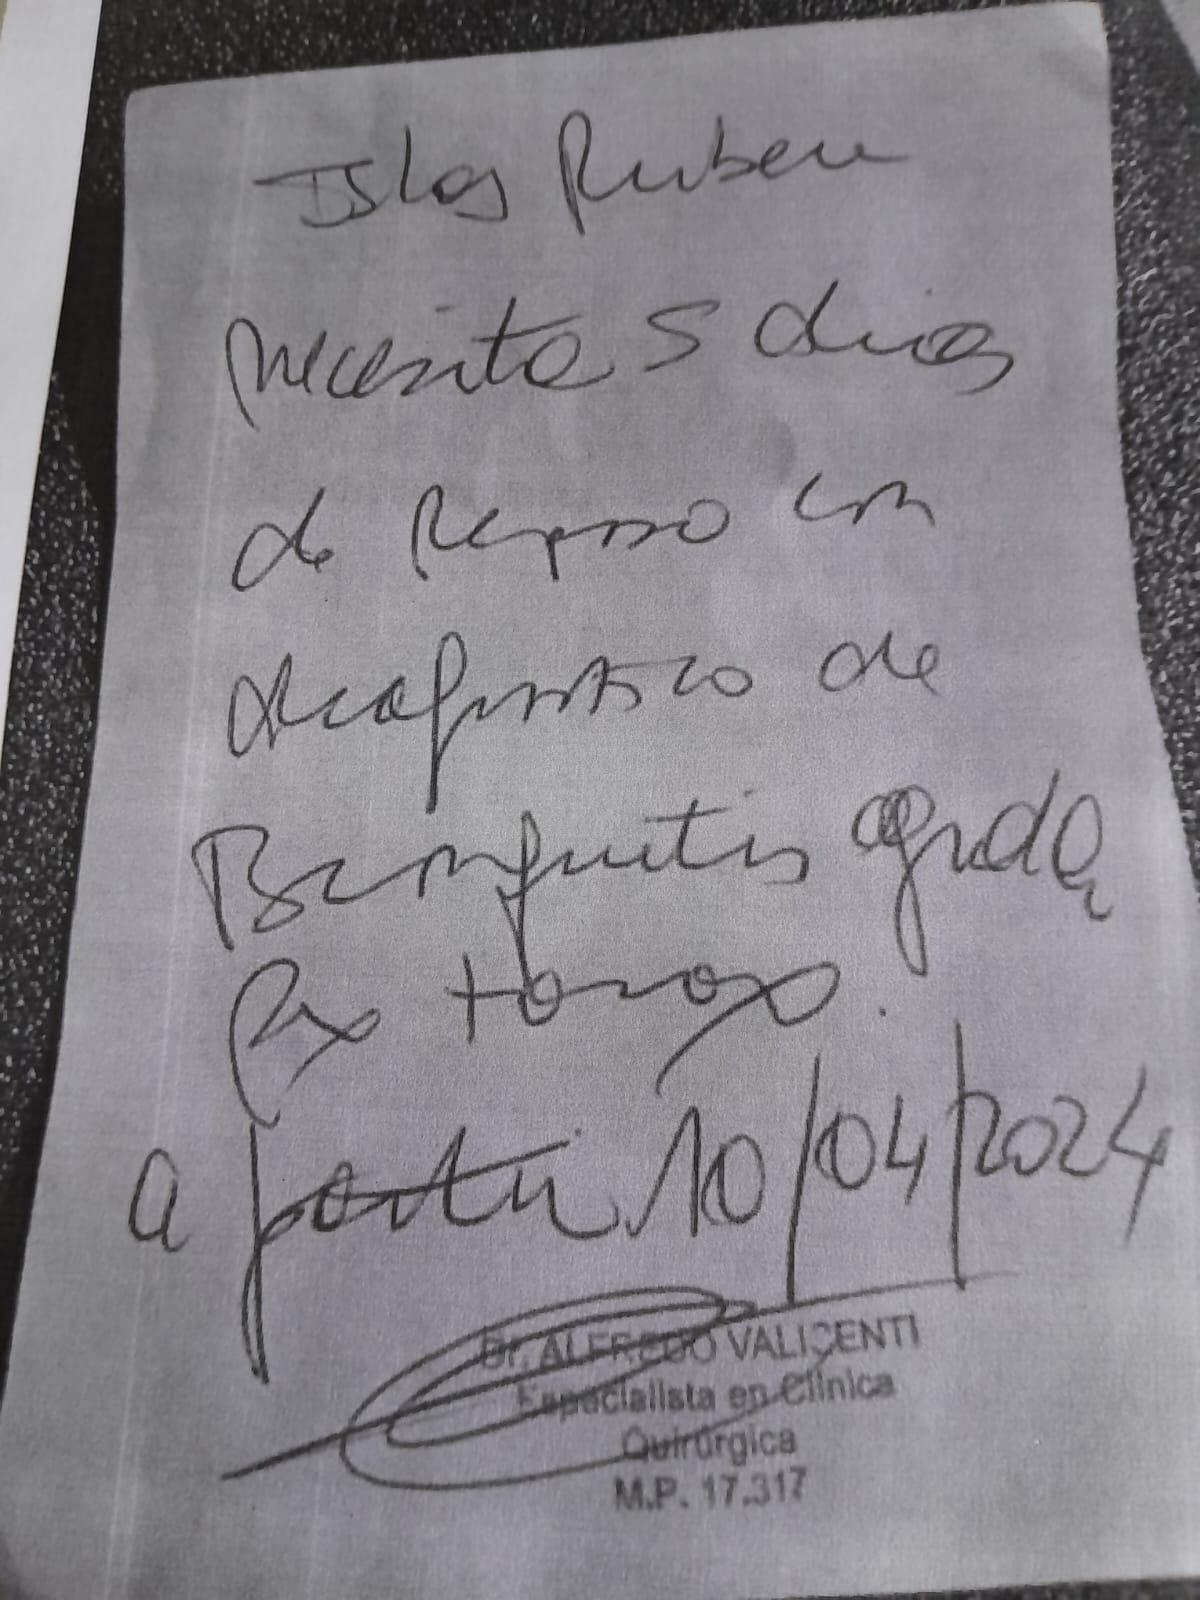 Islas Ruben
necesita 5 dias
de Reposo con
diagnostico de
Bronquitis aguda
Rx torax.
a partir 10/04/2024
Dr. ALFREDO VALICENTI
Especialista en Clínica
Quirúrgica
M.P. 17.317